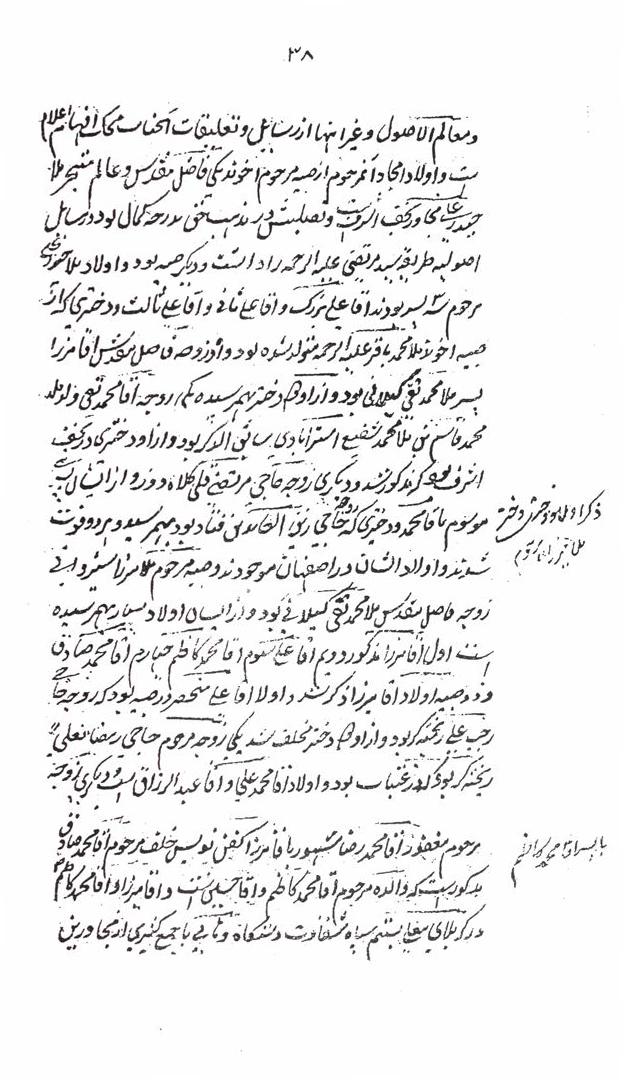 ۳۸
و معالم الاصول و غیر اینها از رسایل و تعلیقات آنجناب محک افهام اعلام
است و اولاد امجاد آنمرحوم از صبیه مرحوم اخوند یکی فاضل مقدس و عالم متبحر ملا
حیدر علی مجاور نجف اشرف است و تصلبش در مذهب بدرجه کمال بود در رسایل
اصولیه طریقه سید مرتضی علیه الرحمه را داشت و دیگر صبیه بود و اولاد ملا حیدر علی
مرحوم سه پسر بودند اقا علی بزرک و اقا علی ثانی و آقا علی ثالث و دختری که از
صبیه اخوند ملا محمد باقر علیه الرحمه متولد شده بود و او زوجه فاضل مقدس اقا میرزا
پسر ملا محمد تقی گیلانی بود و از او دختر بهم رسیده یکی زوجه آقا محمد تقی ولد ملا
محمد قاسم بن ملا محمد شفیع استرابادی سابق الذکر بود و از او دختری در نجف
اشرف بود که مذکور شد و دیگری زوجه حاجی مرتضی قلی کلاه دوز و از ایشان پسری
موسوم باقا محمد و دختری که زوجه حاجی زین العابدین قناد بود بهم رسید و هر دو فوت
شدند و اولاد ایشان در اصفهان موجودند و صبیه مرحوم ملا میرزا شیروانی
زوجه فاضل مقدس ملا محمد تقی گیلانی بود و از ایشان اولاد بسیار بهم رسیده
است اول آقا میرزا مذکور دویم اقا علی سیوم اقا محمد کاظم چهارم اقا محمد صادق
و دو صبیه اولاد اقا میرزا ذکر شد و اولاد اقا علی منحصر در صبیه بود که زوجه حاجی
رجب علی ریخته گر بود و از او دختر مخلف شد یکی زوجه مرحوم حاجی رمضانعلی
ریخته گر بود که در عتبات بود و اولاد اقا محمد علی و آقا عبد الرزاق است و دیگری زوجه
مرحوم مغفور آقا محمد رضا مشهور باقا میرزا کفن نویس خلف مرحوم آقا محمد صادق
مذکور است که والده مرحوم آقا محمد کاظم و اقا حسین است و اقا میرزا و آقا محمد کاظم
در کربلای معلی بستم سپاه شقاوت دستگاه وهابی با جمع کثیری از مجاورین
ذکر اولاد و دختر
ملا میرزا مرحوم
با پسر اقا محمد کاظم